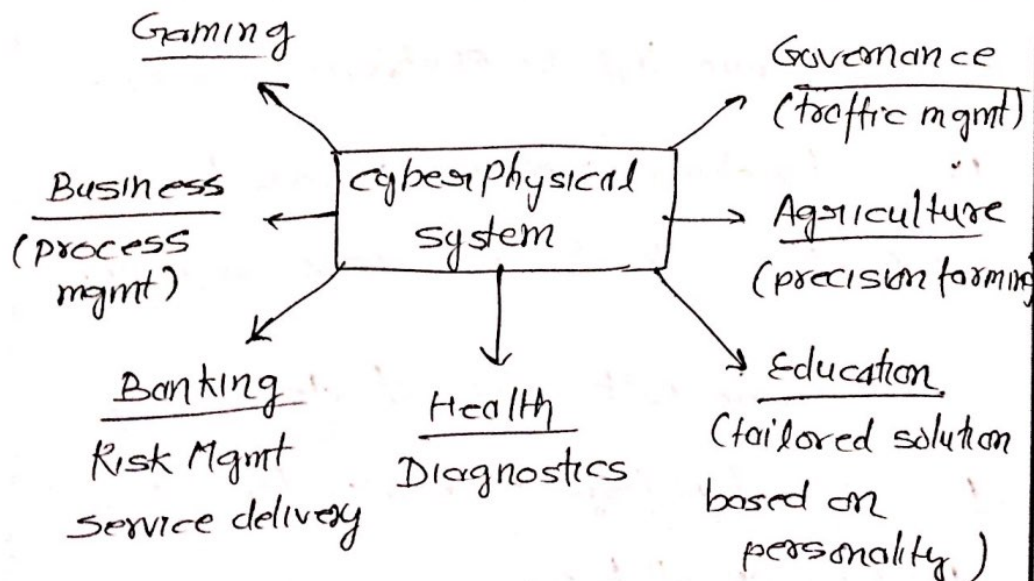 Gaming
Governance
(traffic mgmt)
Cyber Physical
system
Business
(process
mgmt)
Agriculture
(precision farming
Banking
Risk Mgmt
service delivery
Health
Diagnostics
Education
(tailored solution
based on
personality)